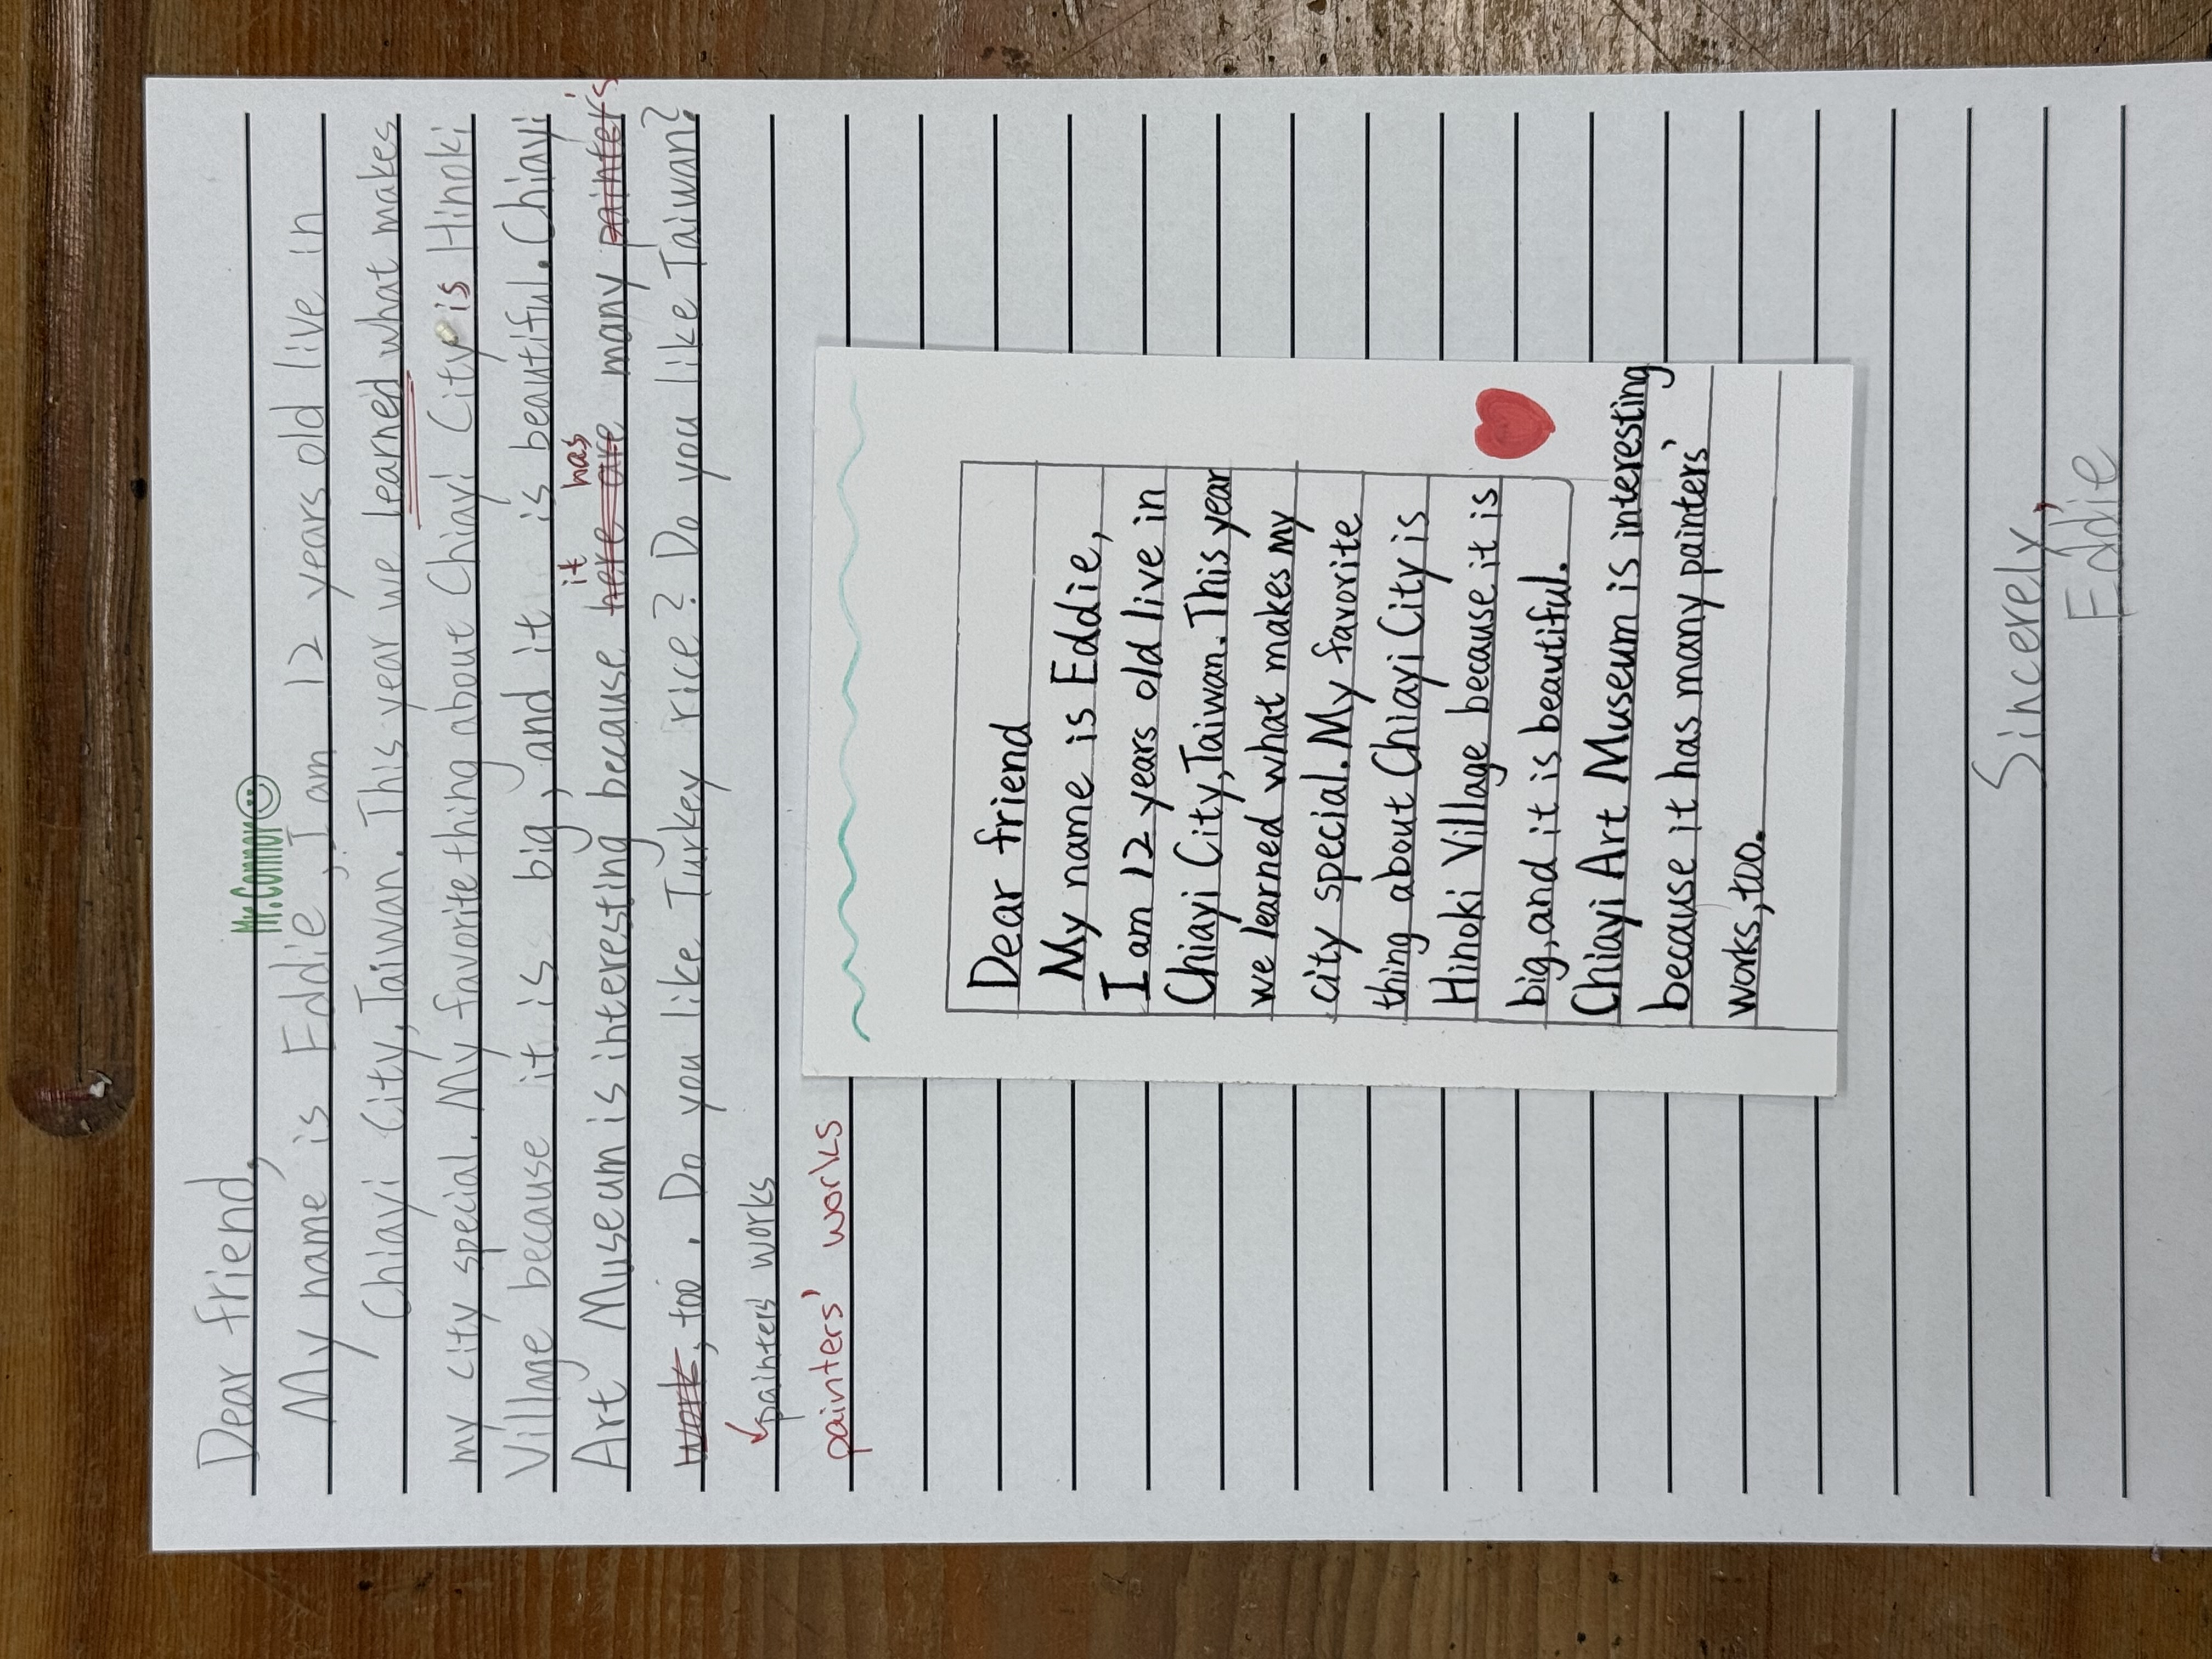 Dear friend,
Mr.Connor
My name is Eddie, I am 12 years old live in
Chiayi City, Taiwan. This year we learned what makes
my city special. My favorite thing about Chiayi City is Hinoki
Village because it is big, and it is beautiful. Chiayi
it has
Art Museum is interesting because here are many painter's
work, too. Do you like Turkey rice? Do you like Taiwan?
painters' works
painters' works
Dear friend
My name is Eddie,
I am 12 years old live in
Chiayi City, Taiwan. This year
we learned what makes my
city special. My favorite
thing about Chiayi City is
Hinoki Village because it is
big, and it is beautiful.
Chiayi Art Museum is interesting
because it has many painters'
works, too.
Sincerely,
Eddie